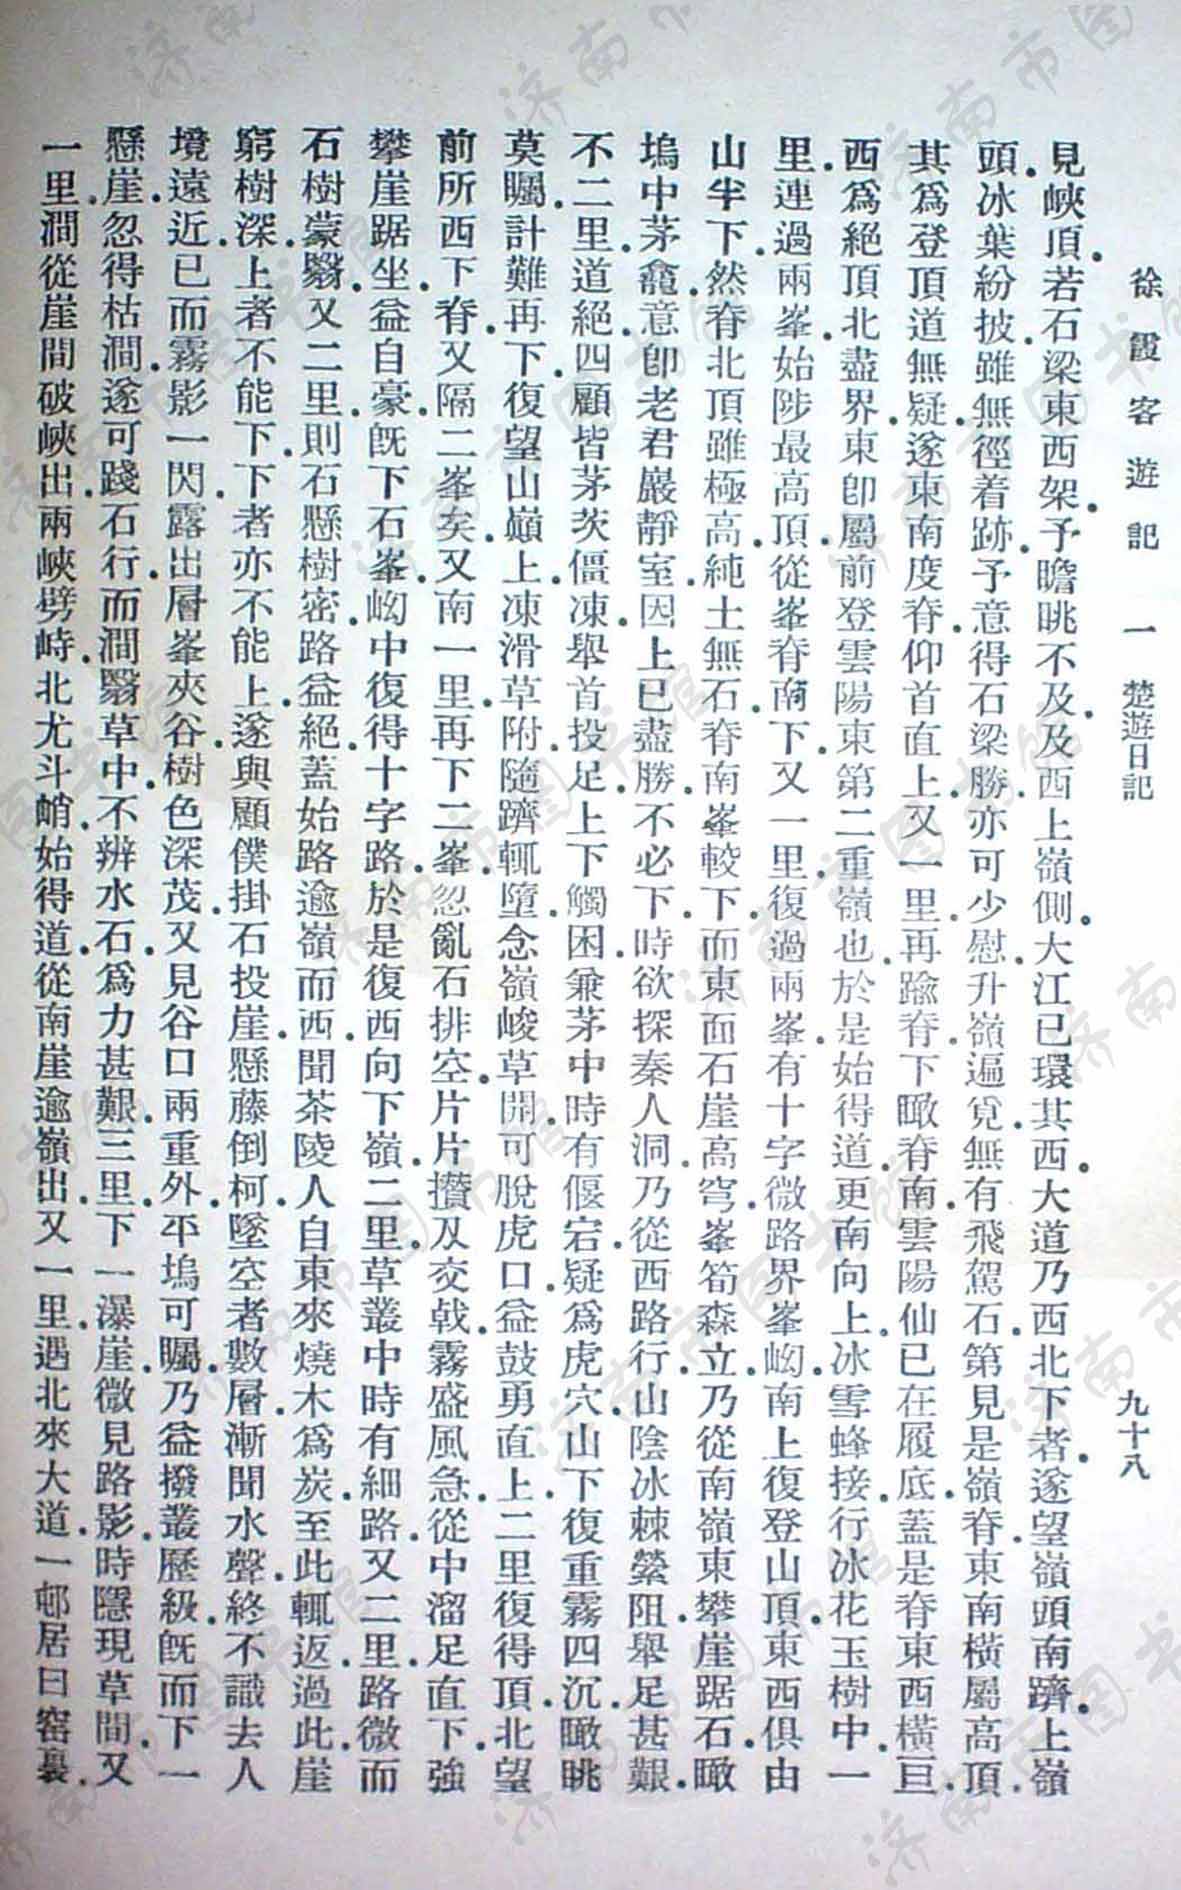 徐霞客遊記 一 楚遊日記 九十八
見峽頂．若石梁東西架．予瞻眺不及．及西上嶺側．大江已環其西．大道乃西北下者．遂望嶺頭南躋．上嶺
頭．冰葉紛披．雖無徑着跡．予意得石梁勝．亦可少慰．升嶺遍覓無有飛駕石．第見是嶺脊東南橫屬高頂．
其爲登頂道無疑．遂東南度脊．仰首直上．又一里．再踰脊．下瞰脊南．雲陽仙已在履底．蓋是脊東西橫亘．
西爲絕頂北盡界．東卽屬前登雲陽東第二重嶺也．於是始得道．更南向上．冰雪蜂接．行冰花玉樹中．一
里．連過兩峯．始陟最高頂．從峯脊南下．又一里．復過兩峯．有十字微路界峯坳．南上復登山頂．東西俱由
山半下．然脊北頂雖極高．純土無石．脊南峯較下．而東面石崖高穹．峯筍森立．乃從南嶺東攀崖踞石．瞰
塢中茅龕．意卽老君巖靜室．因上已盡勝．不必下．時欲探秦人洞．乃從西路行．山陰冰棘縈阻．舉足甚艱．
不二里．道絕．四顧皆茅茨僵凍．舉首投足．上下觸困．兼茅中時有偃宕．疑爲虎穴．山下復重霧四沉．瞰眺
莫矚．計難再下．復望山巔上．凍滑草附．隨躋輒墮．念嶺峻草開．可脫虎口．益鼓勇直上．二里．復得頂．北望
前所西下脊．又隔二峯矣．又南一里．再下二峯．忽亂石排空．片片攢及交戟．霧盛風急．從中溜足直下．強
攀崖踞坐．益自豪．旣下石峯．坳中復得十字路．於是復西向下嶺．二里．草叢中時有細路．又二里．路微而
石樹蒙翳．又二里．則石懸樹密．路益絕．蓋始路逾嶺而西．聞茶陵人自東來燒木爲炭．至此輒返．過此崖
窮樹深．上者不能下．下者亦不能上．遂與顧僕掛石投崖．懸藤倒柯．墜空者數層．漸聞水聲．終不識去人
境遠近．已而霧影一閃．露出層峯夾谷．樹色深茂．又見谷口兩重外．平塢可矚．乃益撥叢歷級．旣而下一
懸崖．忽得枯澗．遂可踐石行．而澗翳草中．不辨水石．爲力甚艱．三里．下一瀑崖．微見路影．時隱現草間．又
一里．澗從崖間破峽出．兩峽劈峙．北尤斗峭．始得道．從南崖逾嶺出．又一里．遇北來大道．一邨居曰窑裏．